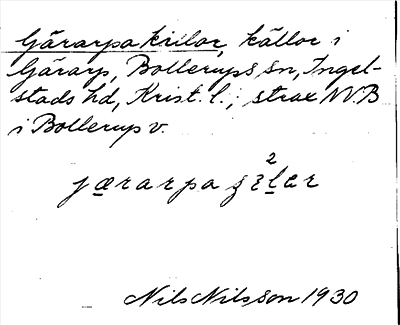 Gärarpakiilor, källor i
Gärarp, Bollerups sn, Ingel-
stads hd, Krist. l.; strax NV. B
i Bollerup v.
Nils Nilsson 1930